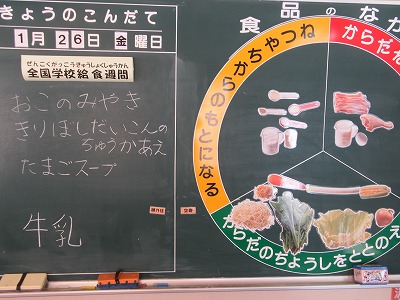 きょうのこんだて
1月26日 金曜日
ぜんこくがっこうきゅうしょくしゅうかん
全国学校給食週間
おこのみやき
きりぼしだいこんの
ちゅうかあえ
たまごスープ
牛乳
食品のなか
ちからやねつ
のもとになる
からだを
からだのちょうしをととのえ